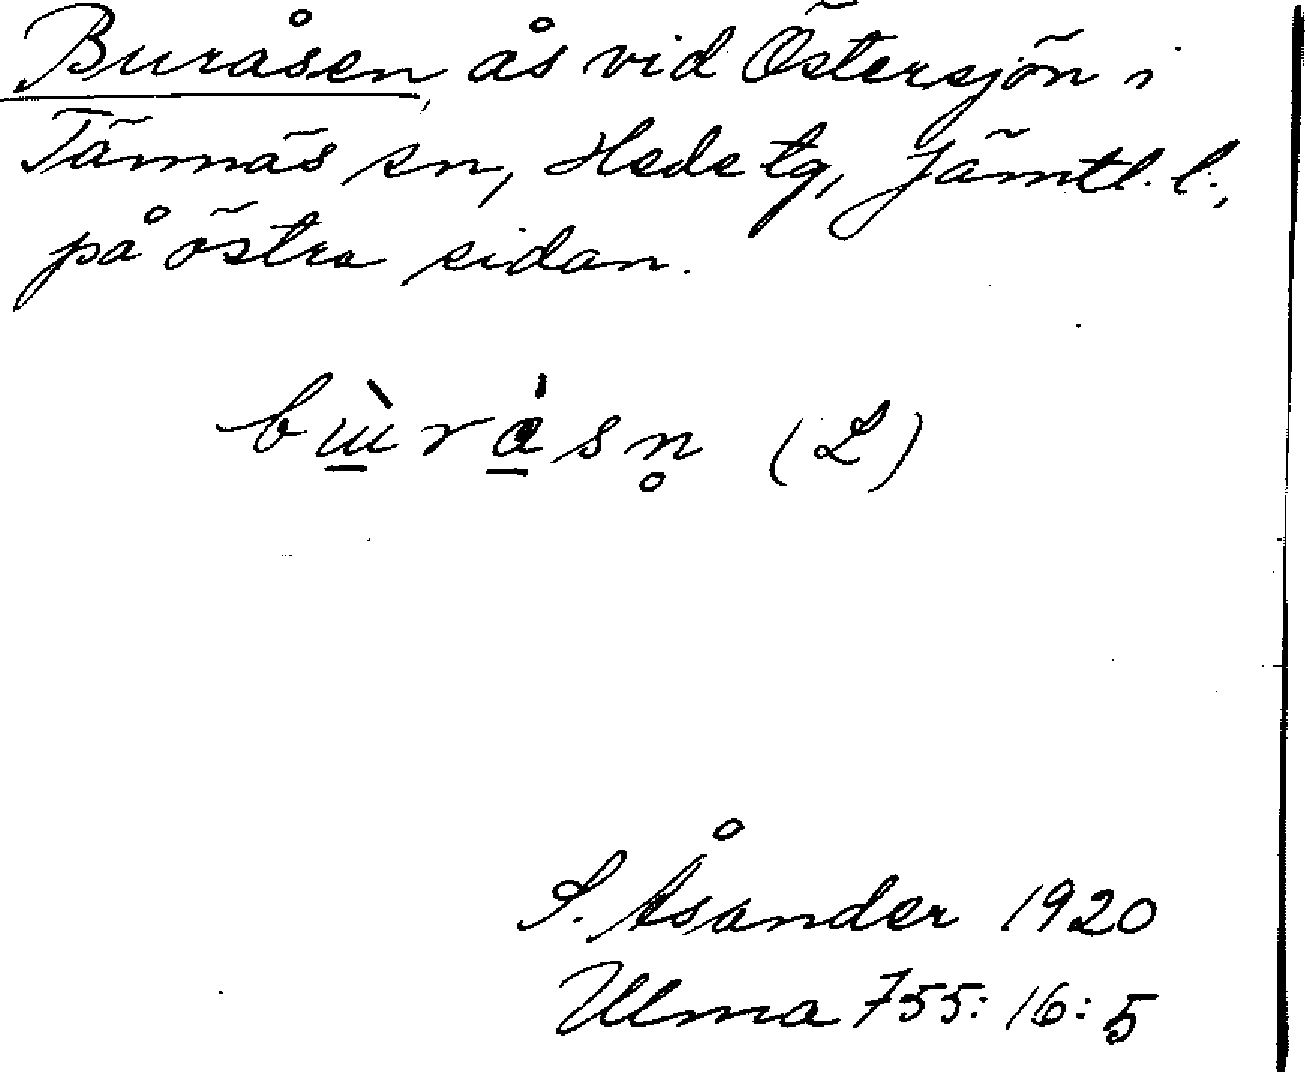 Buråsen, ås vid Östersjön i
Tännäs sn, Hede tg, Jämtl. l.,
på östra sidan.
(L)
S. Åsander 1920
Ulma 755: 16: 5